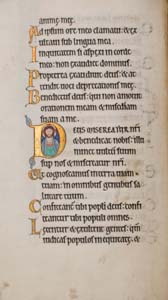 animę meę.
Ad ipsum ore meo clamaui: & ex
ultaui sub lingua mea.
Iniquitatem si aspexi in corde
meo: non exaudiet dominus.
Propterea exaudiuit deus: & at
tendit uoci deprecationis meę.
Benedictus deus: qui non amouit
orationem meam & misericordiam
suam a me.
Deus misereatur nr̄i
& benedicat nobis: illu
minet uultum suum
sup nos & misereatur nr̄i.
Ut cognoscamus in terra uiam
tuam: in omnibus gentibus sa
lutare tuum.
Confiteantur tibi populi deus: confi
teantur tibi populi omnes.
Lętentur & exultent gentes: qm̄
iudicas populos in equitate: &